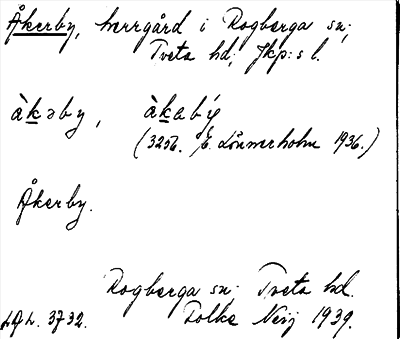 Åkerby, herrgård i Rogberga sn;
Tveta hd; Jkp:s l.
àkəby, àkəbý
(3256. E. Lönnerholm 1936.)
Åkerby.
Rogberga sn; Tveta hd.
3732. Folke 1939.